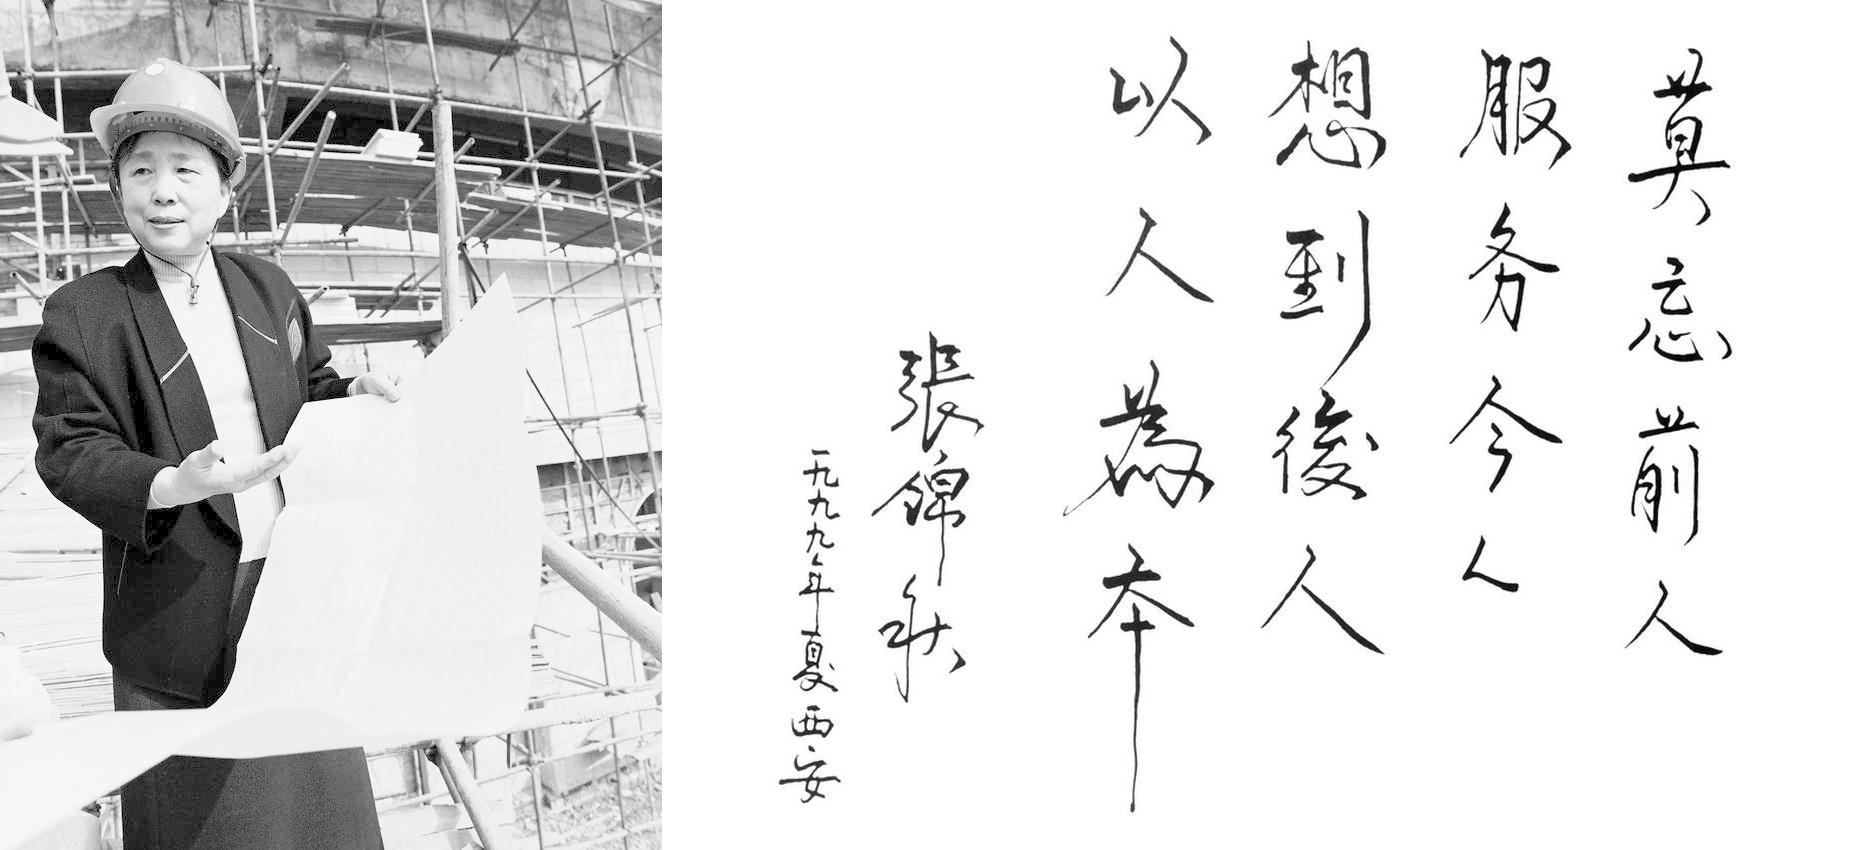 莫忘前人
服务今人
想到後人
以人為本
張錦秋
一九九九年夏西安